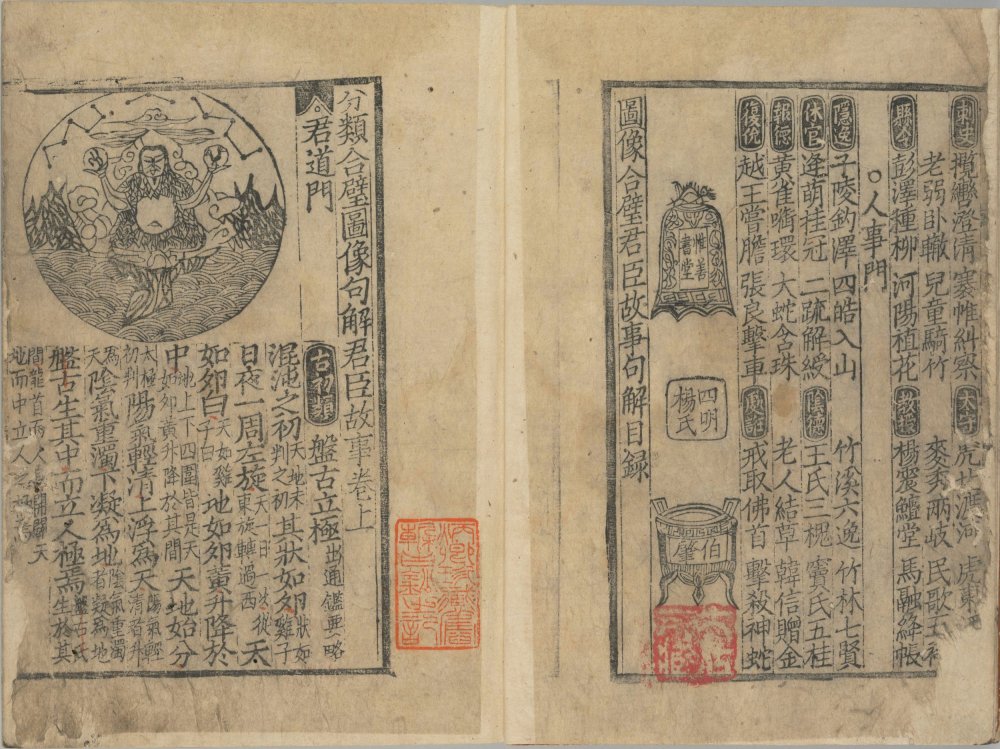 刺史 攬轡澄清 褰帷糾察 太守 渡河 虎東
老弱卧轍 兒童騎竹 麥秀兩岐 民歌五
縣令 彭澤種柳 河陽植花 教授 楊震鱣堂 馬融絳帳
○人事門
隱逸 子陵釣澤 四皓入山 竹溪六逸 竹林七賢
休官 逢萌桂冠 二疏解綬 陰德 王氏三槐 竇氏五桂
報德 黃雀啣環 大蛇含珠 老人結草 韓信贈金
復仇 越王嘗膽 張良擊車 戒取佛首 擊殺神蛇
惟善書堂
四明楊氏
伯肇
圖像合璧君臣故事句解目録
分類合璧圖像句解君臣故事卷上
君道門
古初類 盤古立極 出通鑑要略
混沌之初 天地未判之初 其狀如卵 狀如雞子
日夜一周左旋 天一日一夜從東旋轉過西 天
如卵白 天如雞子白 地如卵黃升降於
中 地上下四圍皆是天如卵黃升降於其間 天地始分
太極初判 陽氣輕清上浮爲天 陽氣輕清者升
爲天 陰氣重濁下凝爲地 陰氣重濁者凝爲地
盤古生其中而立人極焉 盤古氏生於其
間龍首而人 開闢天地而中立人